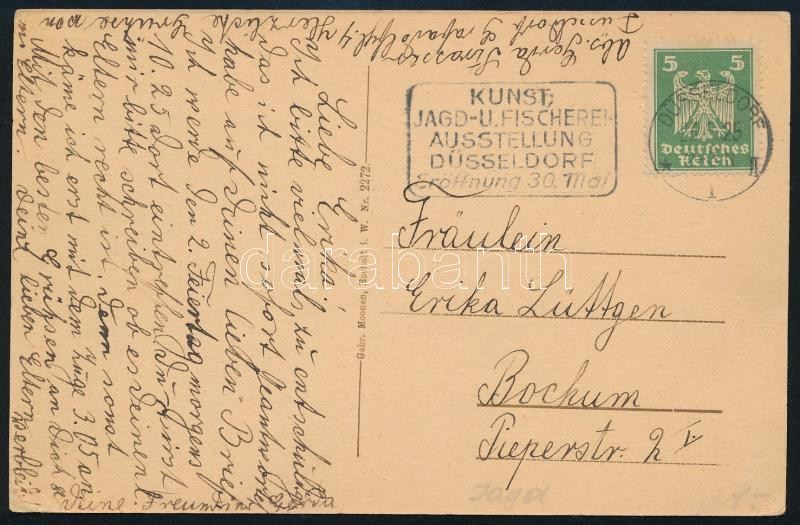 Abs. Gerda
Düsseldorf
KUNST,
JAGD-U. FISCHEREI-
AUSSTELLUNG
DÜSSELDORF
Eröffnung 30. Mai
5 5
Deutsches
Reich
DÜSSELDORF
1
Fräulein
Erika Lüttgen
Bochum
Pieperstr. 2 I.
Gebr. Moonen, Bocholt i. W. Nr. 2272.
Liebe Erika!
Ich bitte vielmals zu entschuldigen
das ich nicht sofort Geantwortet
habe auf Deinen lieben Brief.
Ich werde den 2. Feiertag morgens
10.25 dort eintreffen. Du musst
mir bitte schreiben ob es Deinen l.
Eltern recht ist. Denn sonst
käme ich erst mit dem Zuge 3.05 an.
Mit den besten Grüssen an Dich &
Deine lieben Eltern
Deine Freundin Gerda
Herzliche
Grüsse von
m. Eltern
darabanth
Jagd